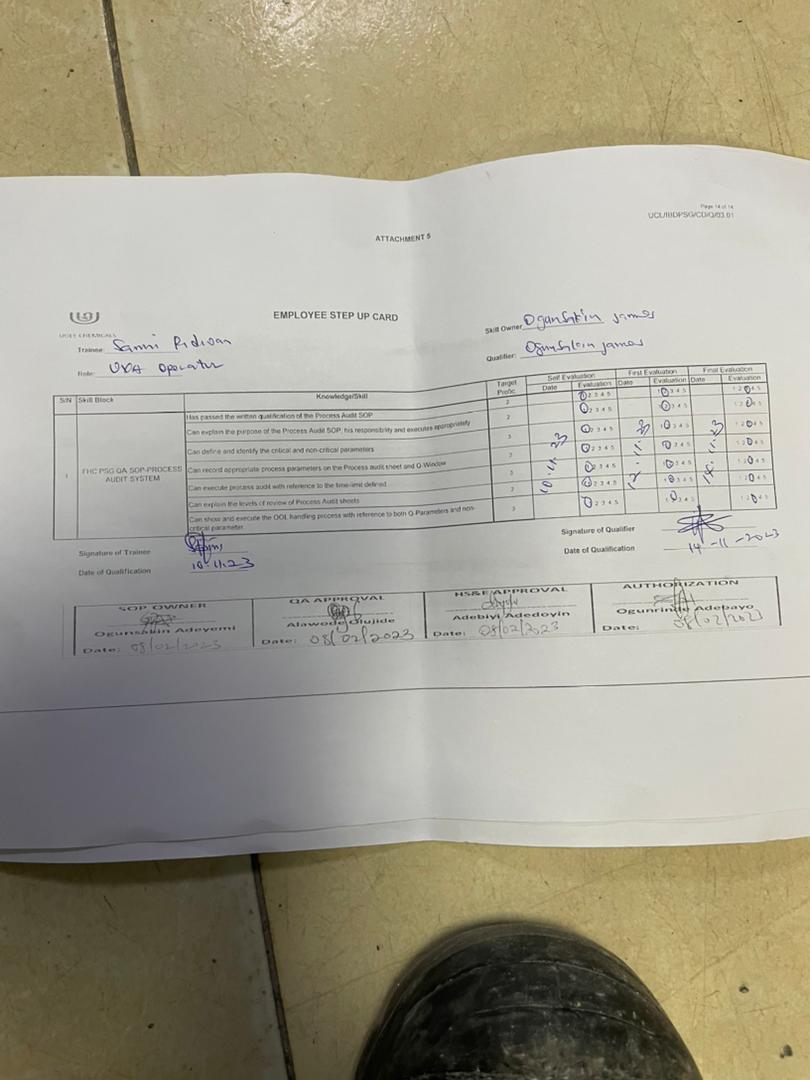 Page 14 of 14
UCL/IBDPSG/CD/Q/03.01
ATTACHMENT 5
EMPLOYEE STEP UP CARD
Skill Owner Ogunsakin James
Trainee: Sanni Ridwan
Qualifier: Ogunsakin James
Role: Operator
S/N Skill Block Knowledge/Skill Target Profic Self Evaluation First Evaluation Final Evaluation
Date Evaluation Date Evaluation Date Evaluation
1 FHC PSG QA SOP-PROCESS AUDIT SYSTEM
Has passed the written qualification of the Process Audit SOP 2 1 2 3 4 5 1 2 3 4 5 1 2 3 4 5
Can explain the purpose of the Process Audit SOP, his responsibility and executes appropriately 2 1 2 3 4 5 1 2 3 4 5 1 2 3 4 5
Can define and identify the critical and non-critical parameters 3 1 2 3 4 5 1 2 3 4 5 1 2 3 4 5
Can record appropriate process parameters on the Process audit sheet and Q-Window 1 2 3 4 5 1 2 3 4 5 1 2 3 4 5
Can execute process audit with reference to the time-limit defined 3 1 2 3 4 5 1 2 3 4 5 1 2 3 4 5
Can explain the levels of review of Process Audit sheets 1 2 3 4 5 1 2 3 4 5 1 2 3 4 5
Can show and execute the OOL handling process with reference to both Q-Parameters and non-critical parameter. 3 1 2 3 4 5 1 2 3 4 5 1 2 3 4 5
Signature of Trainee
Signature of Qualifier
Date of Qualification 10.11.23
Date of Qualification 14-11-2023
SOP OWNER
Ogunsakin Adeyemi
Date: 08/02/2023
QA APPROVAL
Alawode Olujide
Date: 08/02/2023
HS&E APPROVAL
Adebiyi Adedoyin
Date: 08/02/2023
AUTHORIZATION
Ogunrinde Adebayo
Date: 08/02/2023